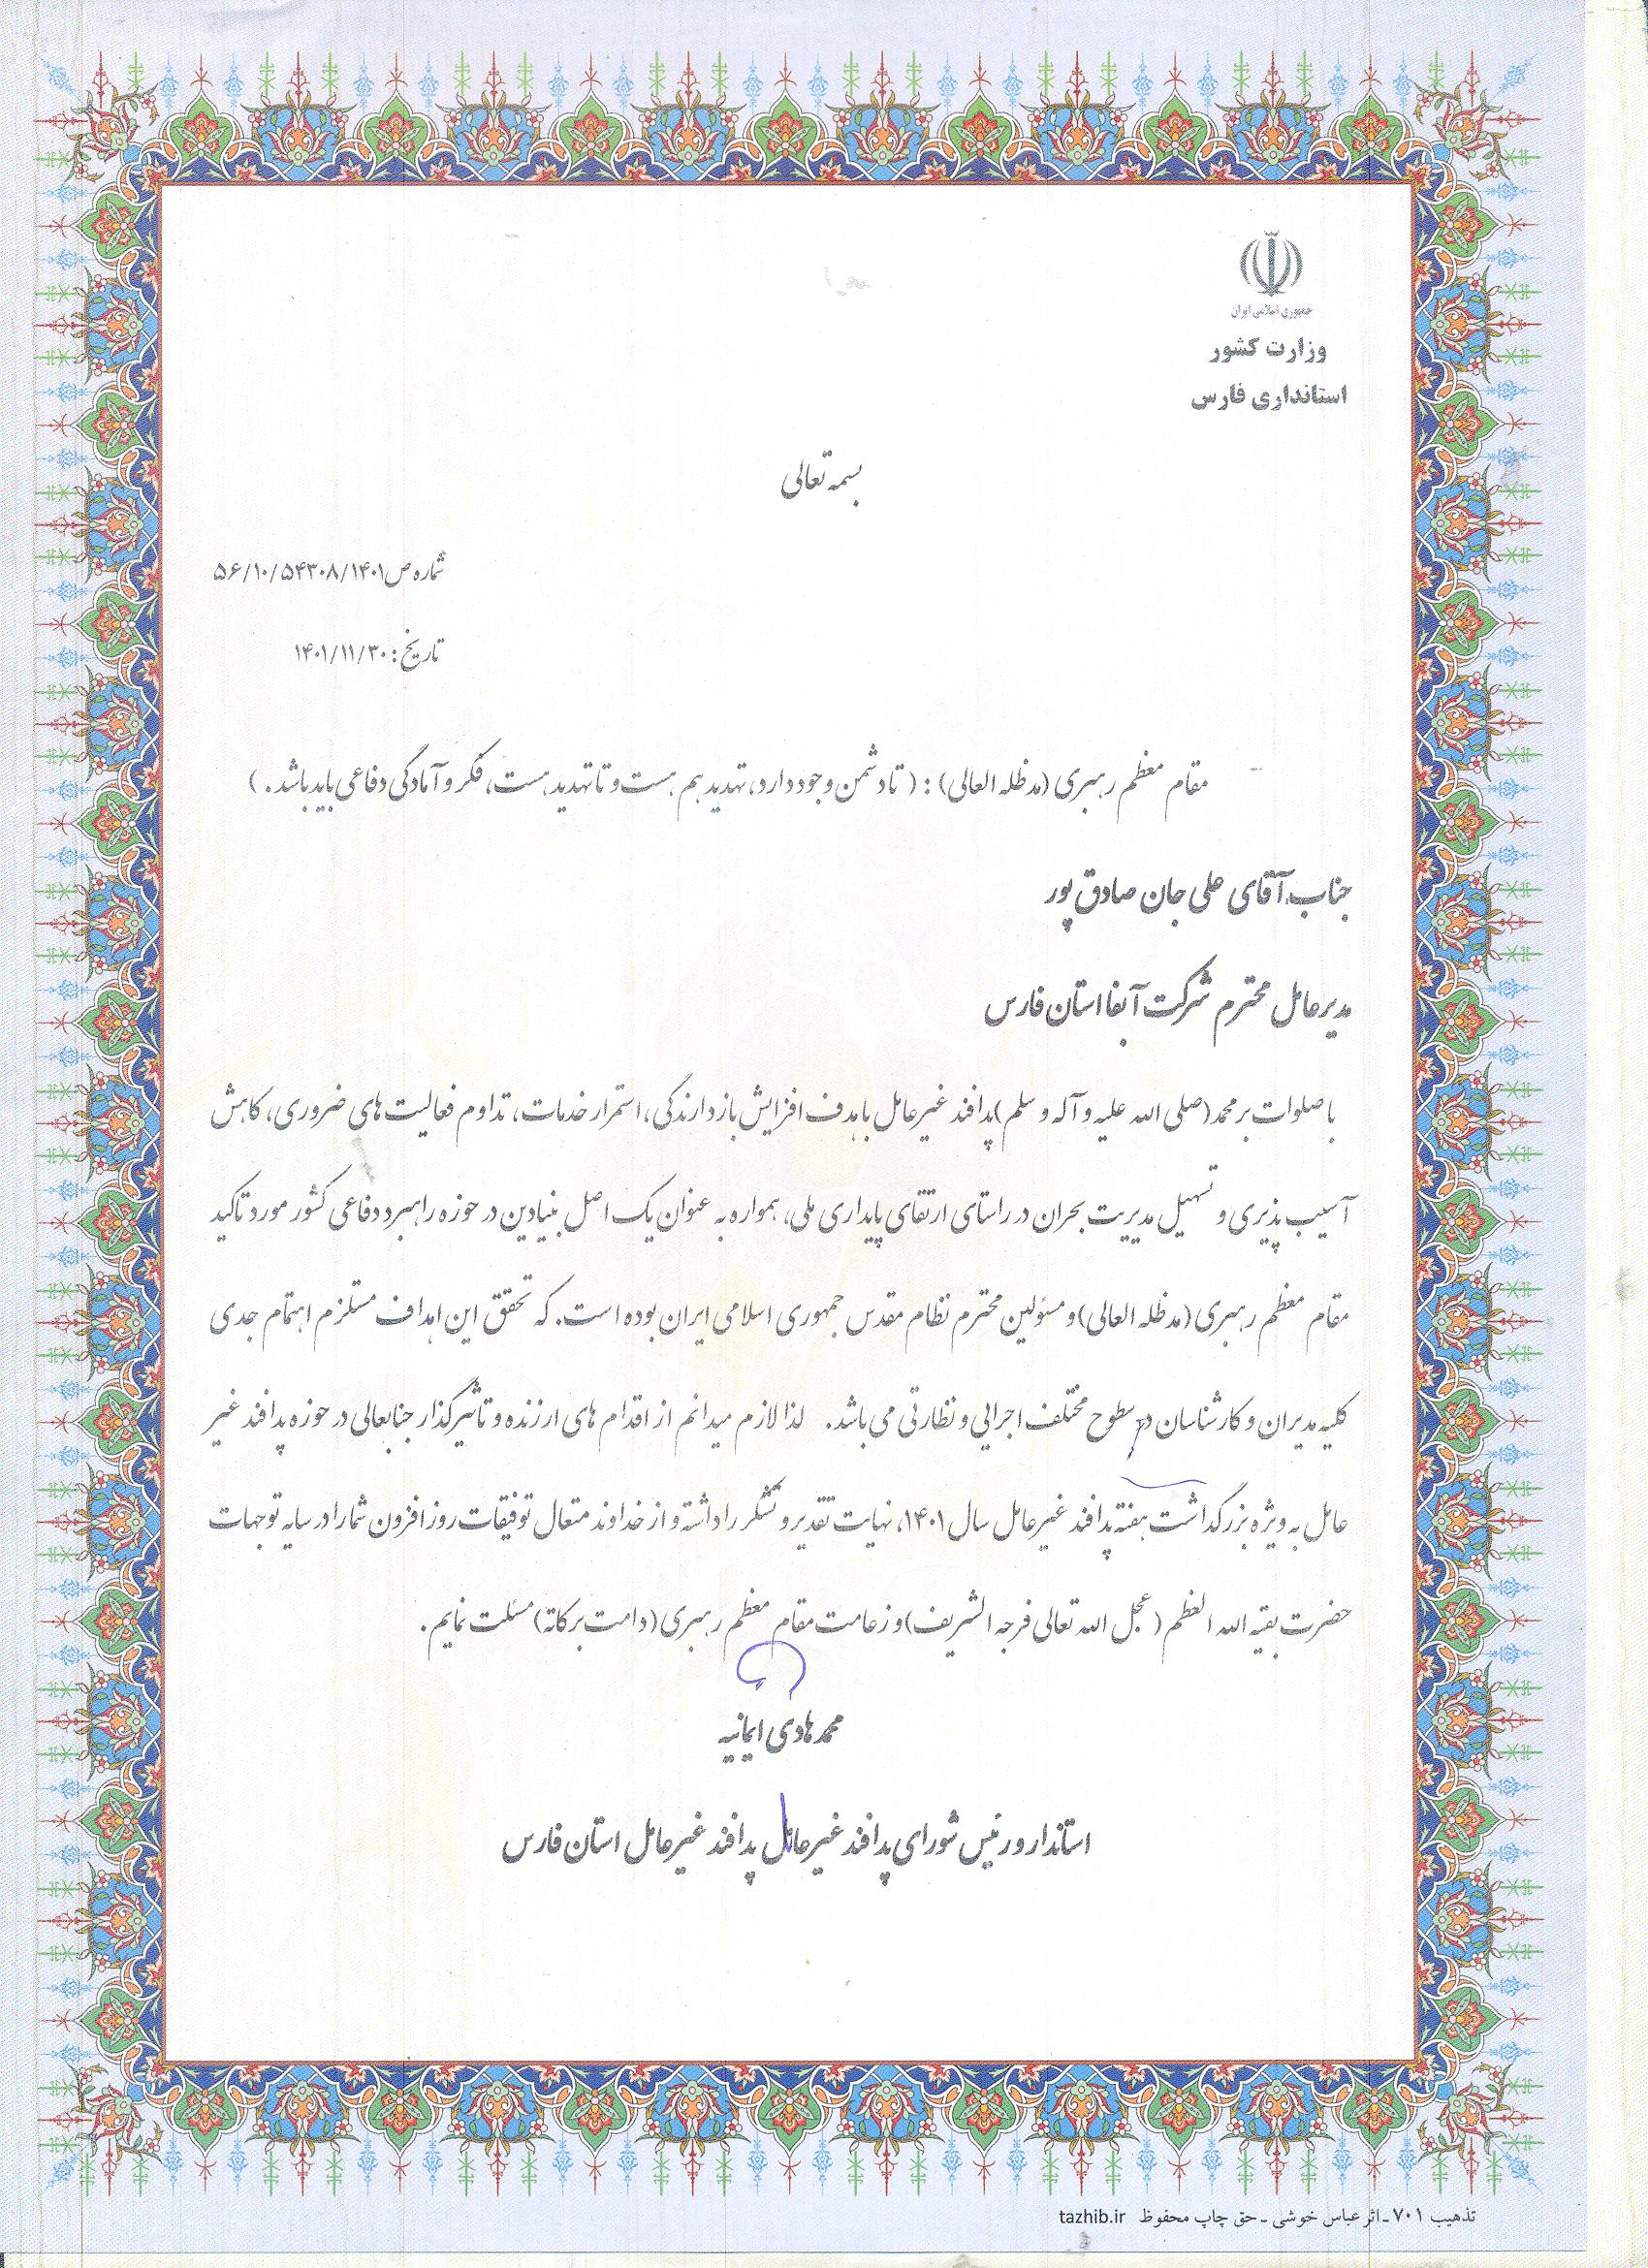 جمهوری اسلامی ایران
وزارت کشور
استانداری فارس
بسمه تعالی
شماره ص۵۶/۱۰/۵۴۳۰۸/۱۴۰۱
تاریخ : ۱۴۰۱/۱۱/۳۰
مقام معظم رهبری (مدظله العالی) : ( تا دشمن وجود دارد، تهدید هم هست و تا تهدید هست، فکر و آمادگی دفاعی باید باشد . )
جناب آقای علی جان صادق پور
مدیرعامل محترم شرکت آبفا استان فارس
با صلوات بر محمد (صلی الله علیه و آله و سلم) پدافند غیرعامل با هدف افزایش بازدارندگی، استمرار خدمات، تداوم فعالیت های ضروری، کاهش
آسیب پذیری و تسهیل مدیریت بحران در راستای ارتقای پایداری ملی، همواره به عنوان یک اصل بنیادین در حوزه راهبرد دفاعی کشور مورد تاکید
مقام معظم رهبری (مدظله العالی) و مسئولین محترم نظام مقدس جمهوری اسلامی ایران بوده است. که تحقق این اهداف مستلزم اهتمام جدی
کلیه مدیران و کارشناسان در سطوح مختلف اجرایی و نظارتی می باشد. لذا لازم میدانم از اقدام های ارزنده و تاثیرگذار جنابعالی در حوزه پدافند غیر
عامل به ویژه بزرگداشت هفته پدافند غیرعامل سال ۱۴۰۱، نهایت تقدیر و تشکر را داشته و از خداوند متعال توفیقات روز افزون شما را در سایه توجهات
حضرت بقیه الله العظم (عجل الله تعالی فرجه الشریف) و زعامت مقام معظم رهبری (دامت برکاته) مسئلت نمایم.
محمد هادی ایمانیه
استاندار و رئیس شورای پدافند غیرعامل پدافند غیرعامل استان فارس
تذهیب ۷۰۱ - اثر عباس خوشی - حق چاپ محفوظ tazhib.ir